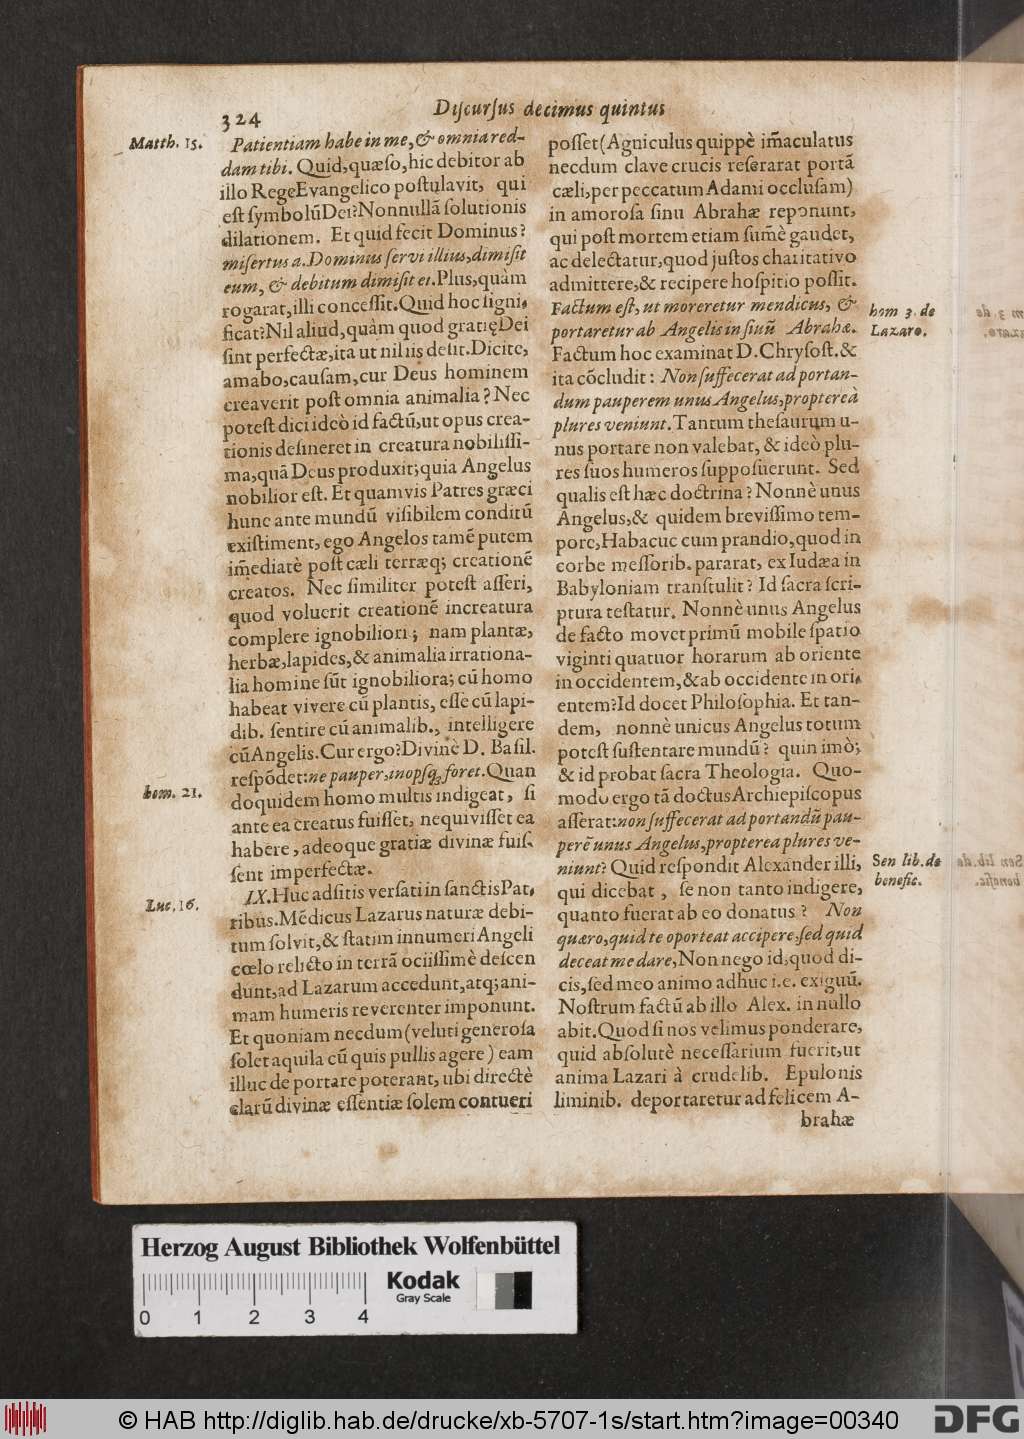 324
Discursus decimus quintus
Matth. 15.
Patientiam habe in me, & omnia red-
dam tibi. Quid, quæso, hic debitor ab
illo Rege Evangelico postulavit, qui
est symbolũ Dei? Nonnullã solutionis
dilationem. Et quid fecit Dominus?
misertus a. Dominus servi illius, dimisit
eum, & debitum dimisit ei. Plus, quàm
rogarat, illi concessit. Quid hoc signi-
ficat? Nil aliud, quàm quod gratię Dei
sint perfectæ, ita ut nil iis desit. Dicite,
amabo, causam, cur Deus hominem
creaverit post omnia animalia? Nec
potest dici ideò id factũ, ut opus crea-
tionis desineret in creatura nobilissi-
ma, quã Deus produxit; quia Angelus
nobilior est. Et quamvis Patres græci
hunc ante mundũ visibilem conditũ
existiment, ego Angelos tamẽ putem
im̃ediatè post cæli terræq; creationẽ
creatos. Nec similiter potest asseri,
quod voluerit creationẽ increatura
complere ignobiliori; nam plantæ,
herbæ, lapides, & animalia irrationa-
lia homine sũt ignobiliora; cũ homo
habeat vivere cũ plantis, esse cũ lapi-
dib. sentire cũ animalib., intelligere
cũ Angelis. Cur ergo? Divinè D. Basil.
hom. 21.
respõdet: ne pauper, inopsq; foret. Quan
doquidem homo multis indigeat, si
ante ea creatus fuisset, nequivisset ea
habere, adeoque gratiæ divinæ fuis-
sent imperfectæ.
Luc. 16.
IX. Huc adsitis versati in sanctis Pat-
ribus. Mẽdicus Lazarus naturæ debi-
tum solvit, & statim innumeri Angeli
cœlo relicto in terrã ociissimè descen
dunt, ad Lazarum accedunt, atq; ani-
mam humeris reverenter imponunt.
Et quoniam necdum (veluti generosa
solet aquila cũ quis pullis agere) eam
illuc de portare poterant, ubi directè
clarũ divinæ essentiæ solem contueri
posset (Agniculus quippè im̃aculatus
necdum clave crucis reserarat portã
cæli, per peccatum Adami occlusam)
in amorosa sinu Abrahæ reponunt,
qui post mortem etiam sum̃è gaudet,
ac delectatur, quod justos charitativo
admittere, & recipere hospitio possit.
hom 3. de
Lazaro.
Factum est, ut moreretur mendicus, &
portaretur ab Angelis in sinũ Abrahæ.
Factum hoc examinat D. Chrysost. &
ita cõcludit: Non suffecerat ad portan-
dum pauperem unus Angelus, propterea
plures veniunt. Tantum thesaurum u-
nus portare non valebat, & ideò plu-
res suos humeros supposuerunt. Sed
qualis est hæc doctrina? Nonnè unus
Angelus, & quidem brevissimo tem-
pore, Habacuc cum prandio, quod in
corbe messorib. pararat, ex Iudæa in
Babyloniam transtulit? Id sacra scri-
ptura testatur. Nonnè unus Angelus
de facto movet primũ mobile spatio
viginti quatuor horarum ab oriente
in occidentem, & ab occidente in ori-
entem? Id docet Philosophia. Et tan-
dem, nonnè unicus Angelus totum
potest sustentare mundũ? quin imò;
& id probat sacra Theologia. Quo-
modo ergo tã doctus Archiepiscopus
asserat: non suffecerat ad portandũ pau-
perẽ unus Angelus, propterea plures ve-
Sen lib. de
benefic.
niunt? Quid respondit Alexander illi,
qui dicebat, se non tanto indigere,
quanto fuerat ab eo donatus? Non
quæro, quid te oporteat accipere, sed quid
deceat me dare, Non nego id, quod di-
cis, sed meo animo adhuc i.e. exiguũ.
Nostrum factũ ab illo Alex. in nullo
abit. Quod si nos velimus ponderare,
quid absolutè necessarium fuerit, ut
anima Lazari à crudelib. Epulonis
liminib. deportaretur ad felicem A-
brahæ
Herzog August Bibliothek Wolfenbüttel
Kodak
Gray Scale
0 1 2 3 4
© HAB http://diglib.hab.de/drucke/xb-5707-1s/start.htm?image=00340
DFG